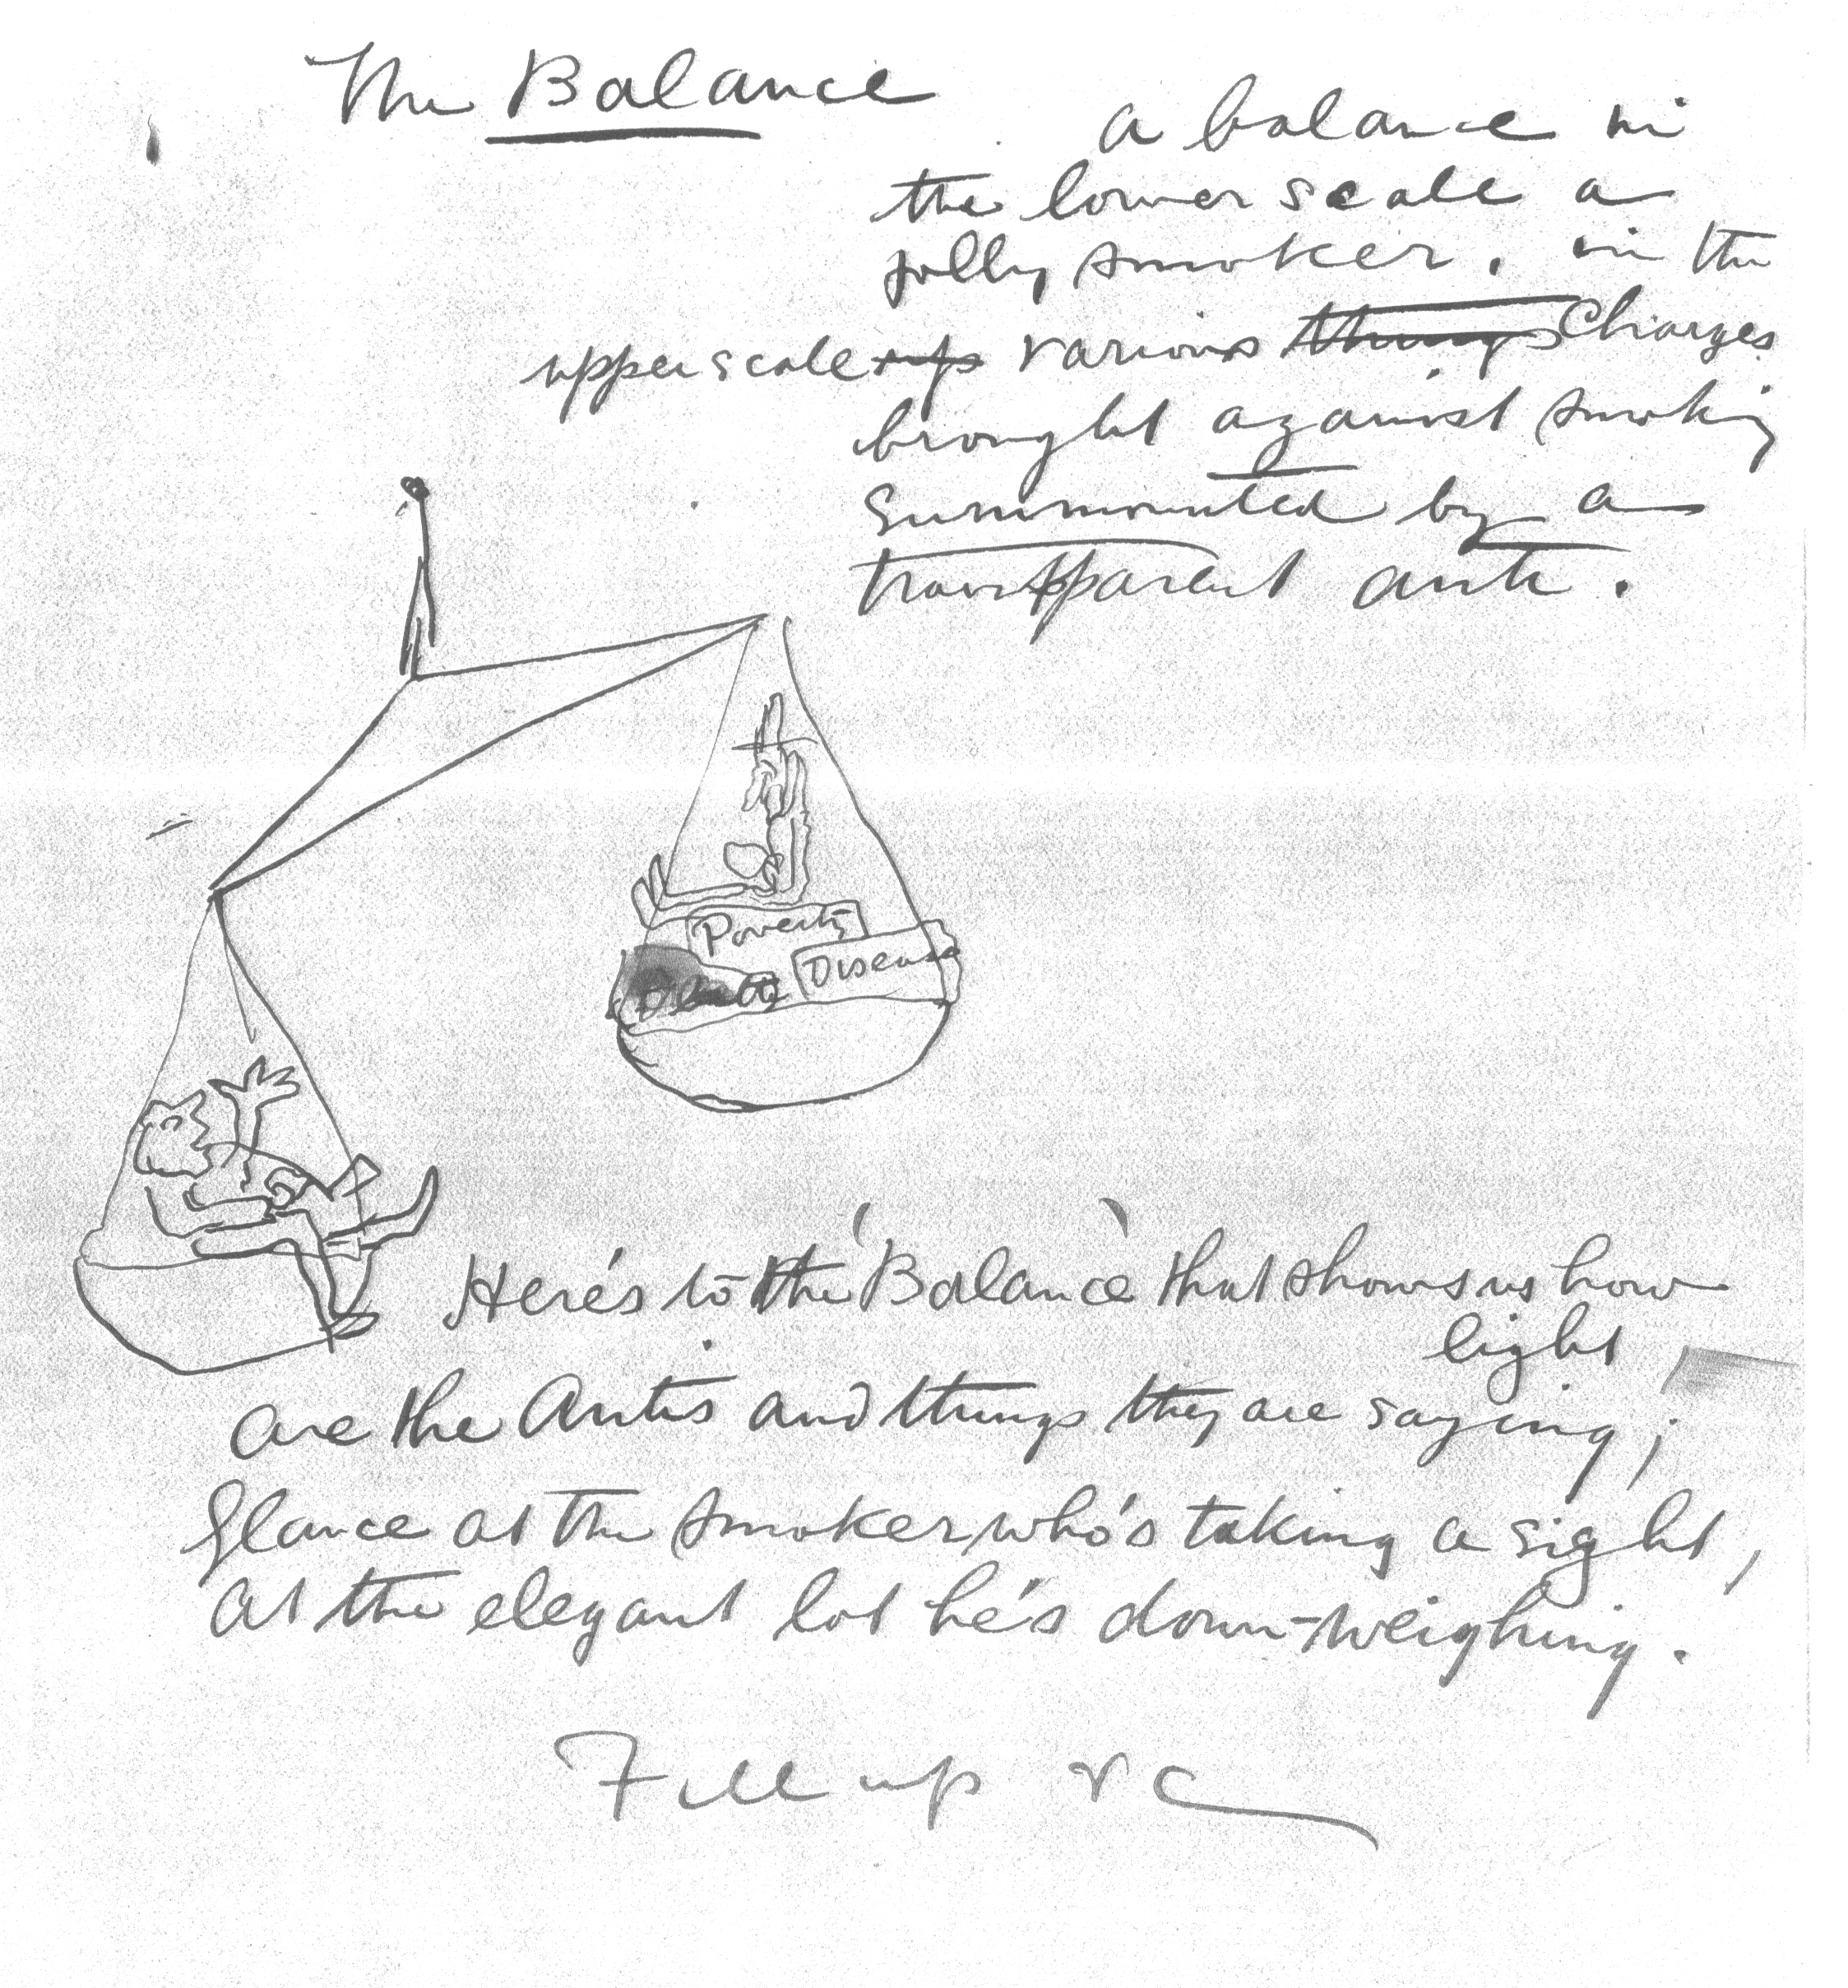 The Balance
a balance in
the lower scale a
jolly smoker. in the
upper scale up various things Charges
brought against smoking
Surmounted by a
transparent anti.
Poverty
Disease
Death
Here's to the 'Balance' that shows us how
light
are the Antis and things they are saying;
Glance at the smoker who's taking a sight,
At the elegant lot he's down-weighing.
Fill up &c